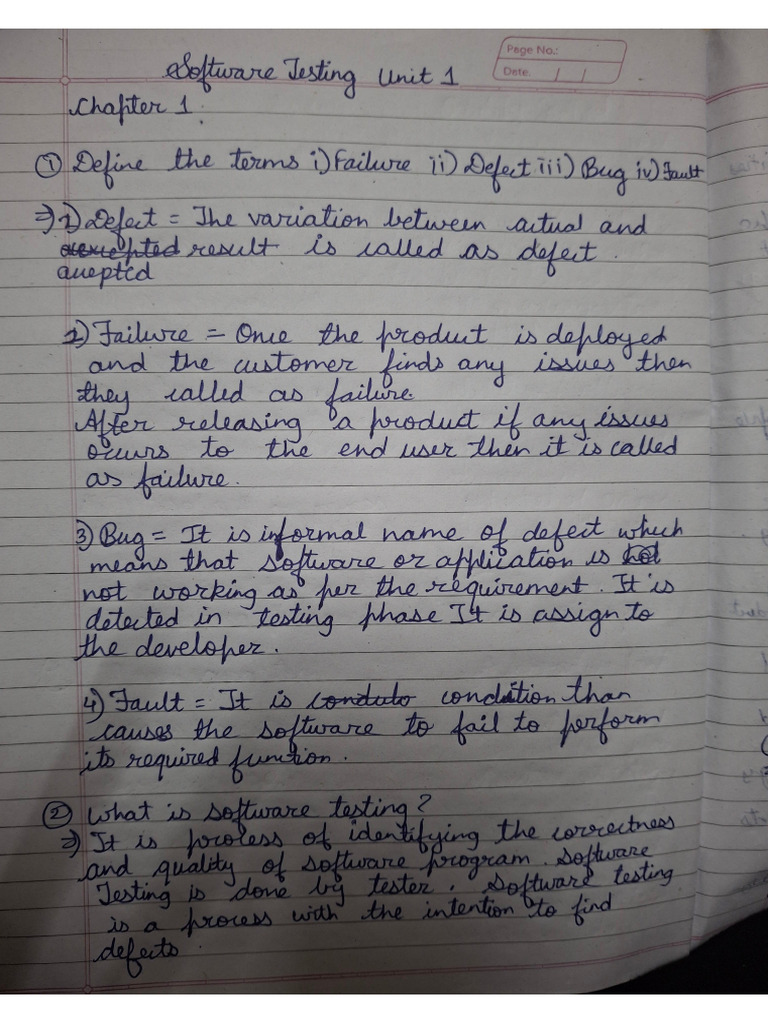 Page No.:
Date. / /
Software Testing Unit 1
Chapter 1.
① Define the terms i) Failure ii) Defect iii) Bug iv) Fault
⇒ 1) Defect = The variation between actual and
result is called as defect.
accepted
2) Failure = Once the product is deployed
and the customer finds any issues then
they called as failure.
After releasing a product if any issues
occurs to the end user then it is called
as failure.
3) Bug = It is informal name of defect which
means that software or application is
not working as per the requirement. It is
detected in testing phase It is assign to
the developer.
4) Fault = It is condition than
causes the software to fail to perform
its required function.
② What is software testing?
⇒ It is process of identifying the correctness
and quality of software program. Software
Testing is done by tester. Software testing
is a process with the intention to find
defects.